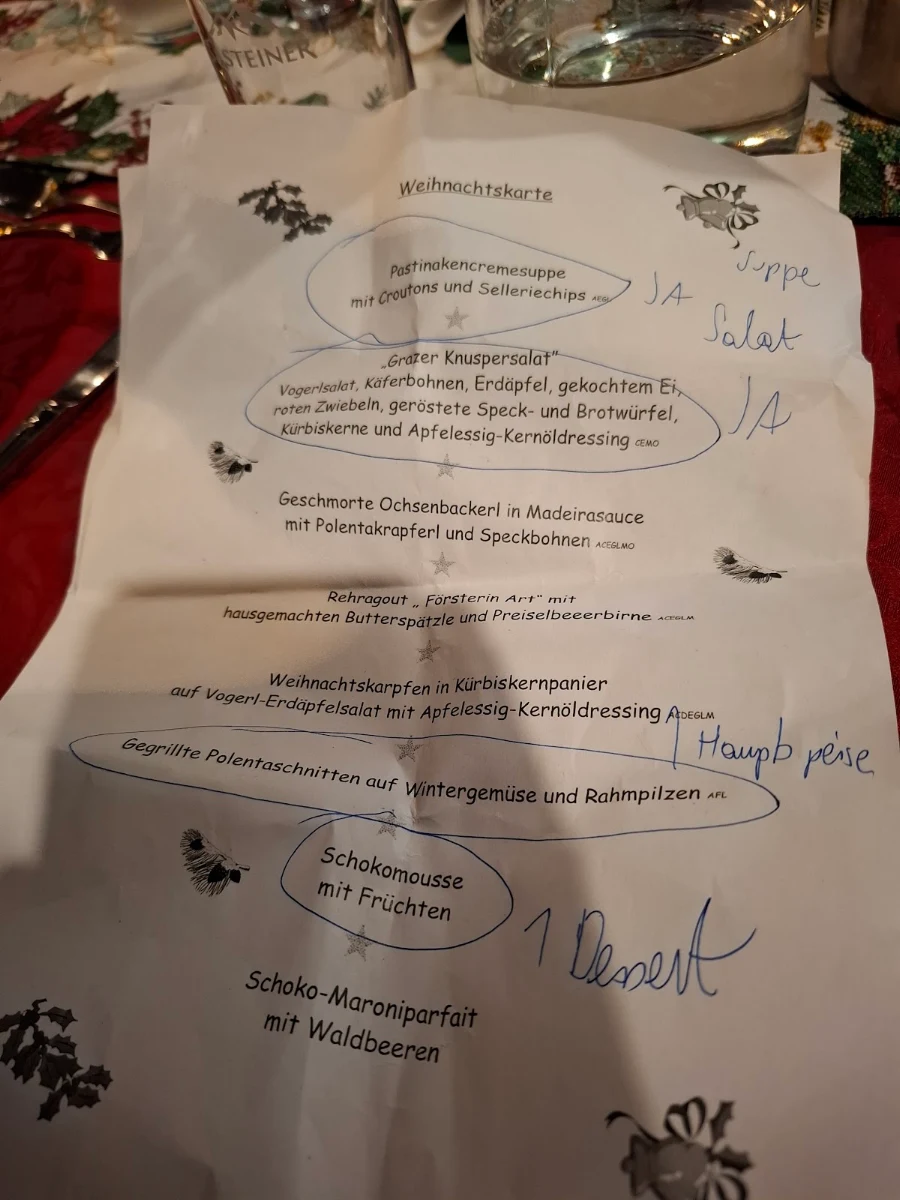 STEINER
Weihnachtskarte
Suppe
Pastinakencremesuppe
mit Croutons und Selleriechips AEGL
JA
Salat
„Grazer Knuspersalat"
Vogerlsalat, Käferbohnen, Erdäpfel, gekochtem Ei,
roten Zwiebeln, geröstete Speck- und Brotwürfel,
Kürbiskerne und Apfelessig-Kernöldressing CEMO
JA
Geschmorte Ochsenbackerl in Madeirasauce
mit Polentakrapferl und Speckbohnen ACEGLMO
Rehragout „ Försterin Art" mit
hausgemachten Butterspätzle und Preiselbeeerbirne ACEGLM
Weihnachtskarpfen in Kürbiskernpanier
auf Vogerl-Erdäpfelsalat mit Apfelessig-Kernöldressing ACDEGLM
1 Haupbpeise
Gegrillte Polentaschnitten auf Wintergemüse und Rahmpilzen AFL
Schokomousse
mit Früchten
1 Dessert
Schoko-Maroniparfait
mit Waldbeeren